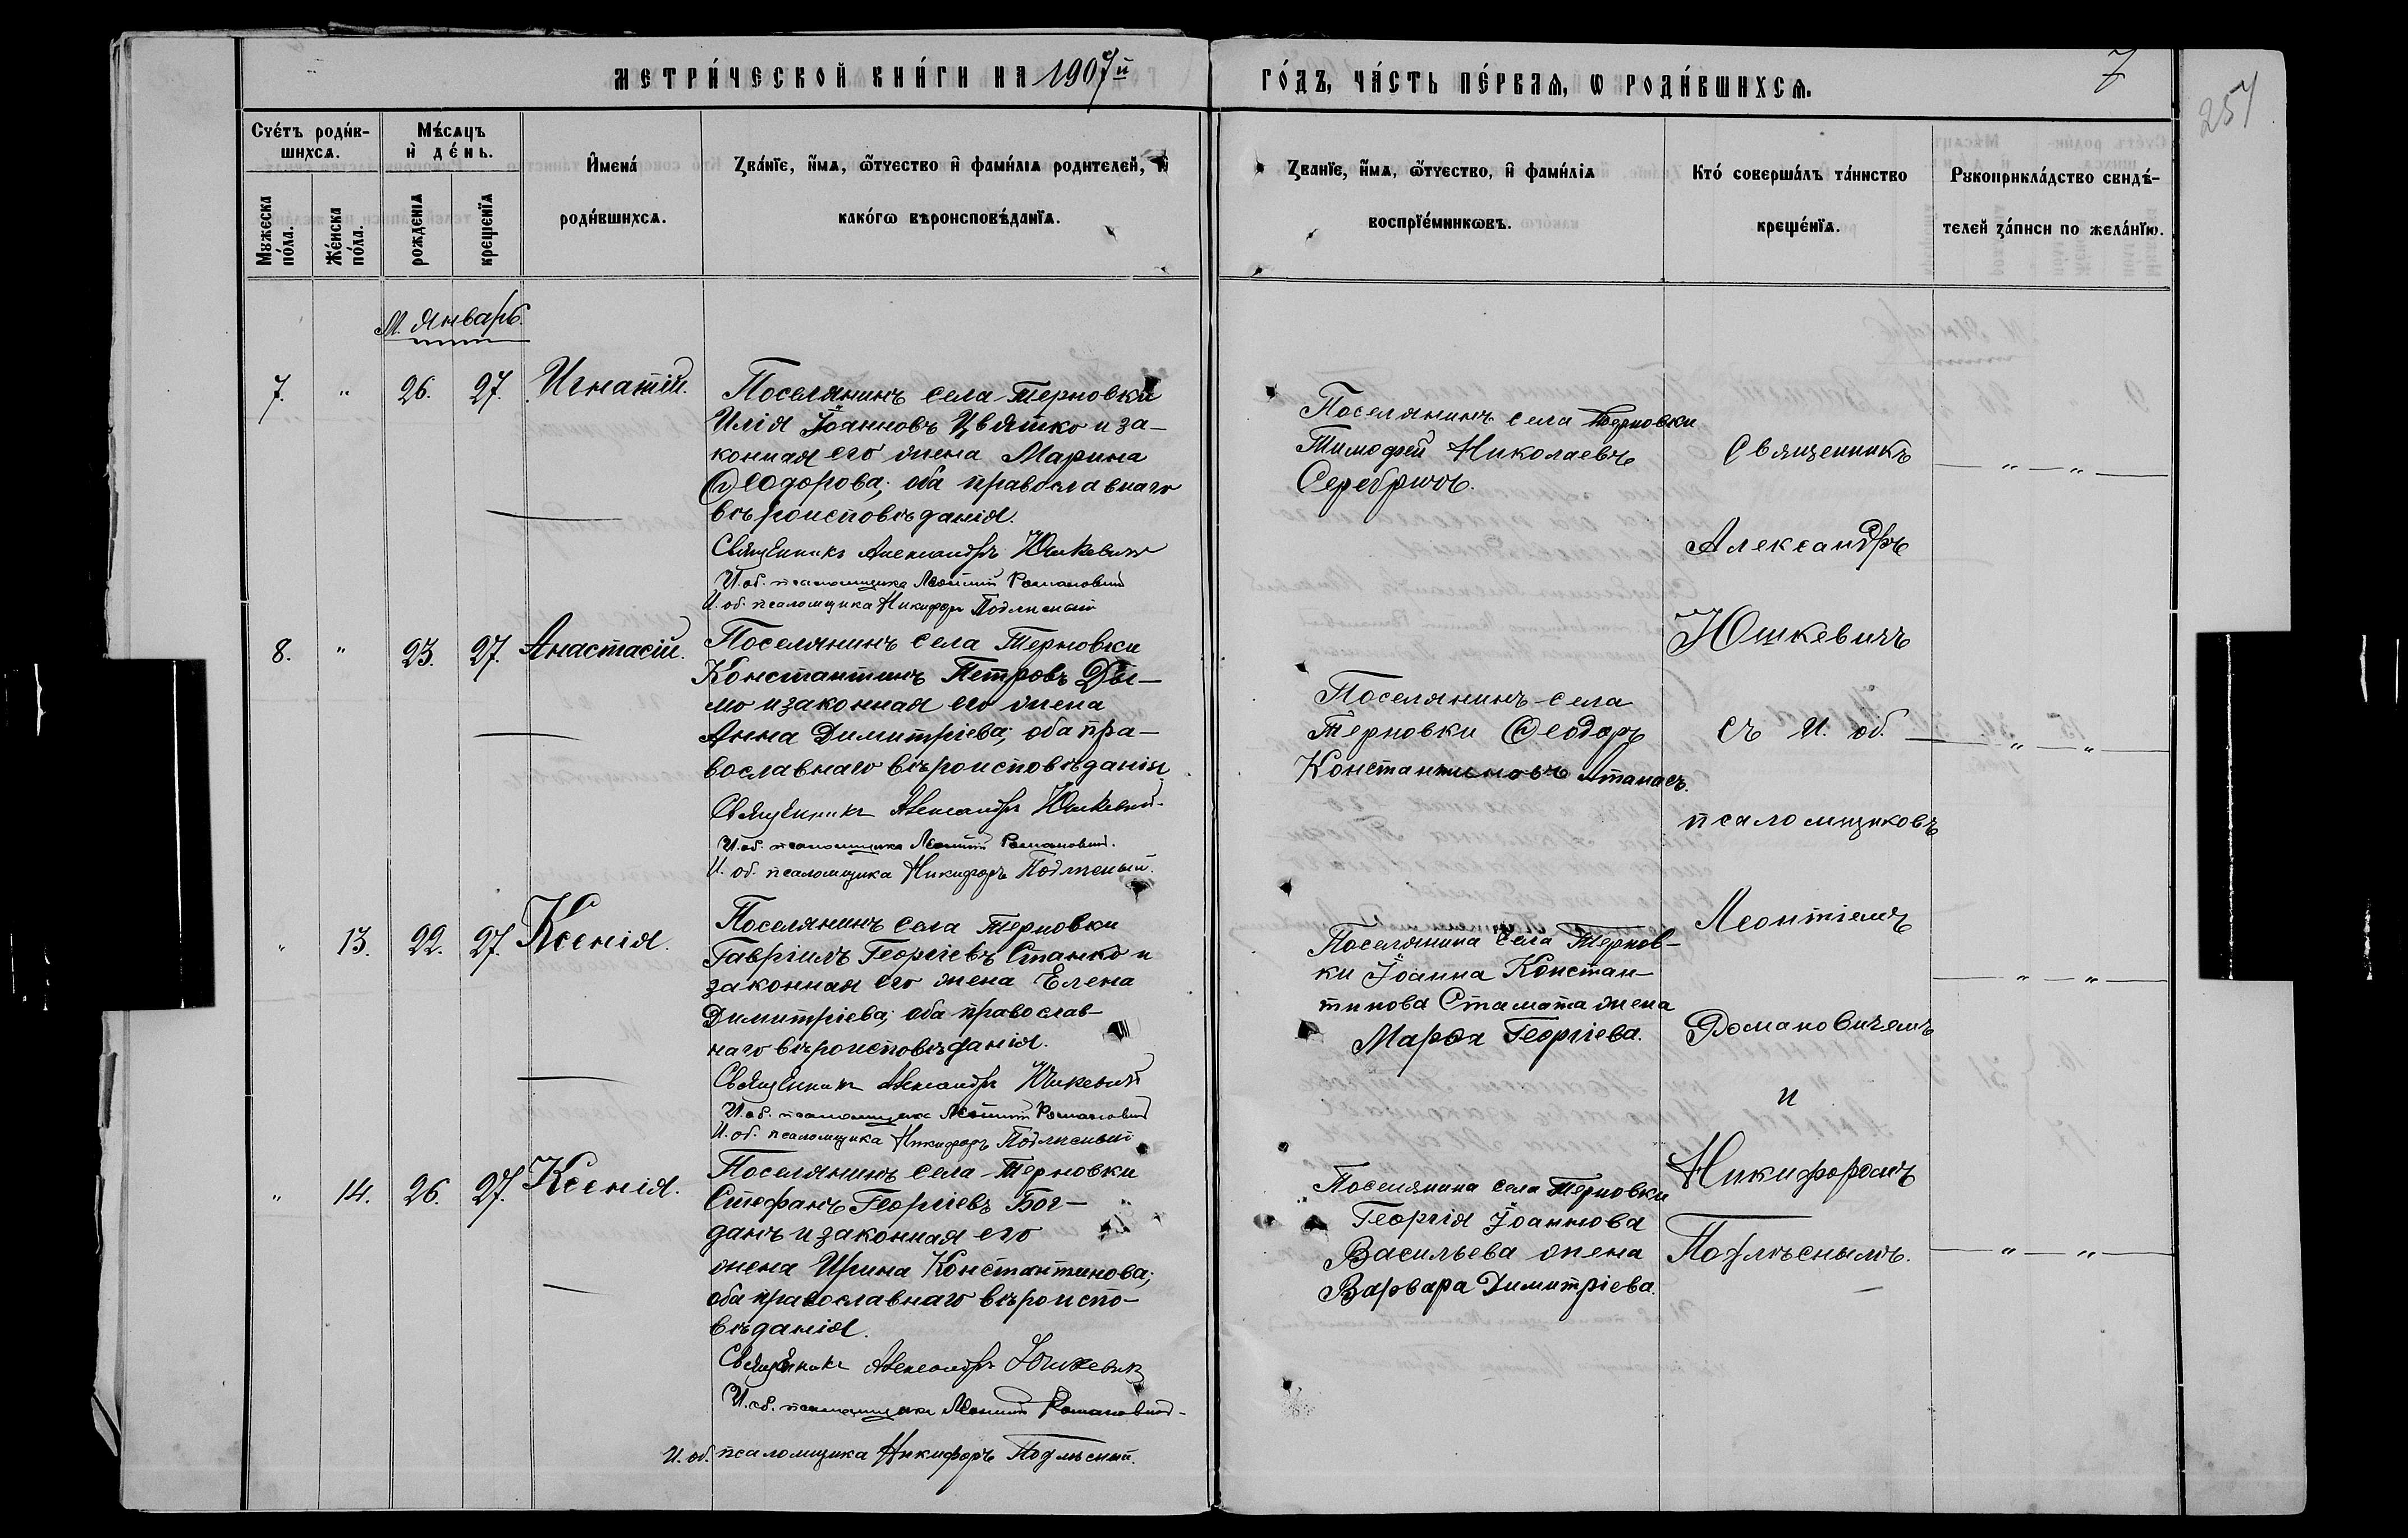 МЕТРИ́ЧЕСКОЙ КНИ́ГИ НА 1907й
ГО́ДЪ, ЧА́СТЬ ПЕ́РВАѦ, Ѡ РОДИ́ВШИХСѦ.
7
257
Сче́тъ роди́в-
шихсѧ.
Мꙋжеска
по́ла.
Же́нска
по́ла.
Мѣ́сѧцъ
и҆ де́нь.
рожденїѧ
крещенїѧ
И҆мена́
роди́вшихсѧ.
Зва́нїе, и҆́мѧ, ѻ҆́тчество и҆ фами́лїѧ родителей, и҆
како́гѡ вѣроисповѣ́данїѧ.
Зва́нїе, и҆́мѧ, ѻ҆́тчество, и҆ фами́лїѧ
воспрїе́мникѡвъ.
Кто́ соверша́лъ та́инство
креще́нїѧ.
Рꙋкоприкла́дство свидѣ́-
телей за́писи по жела́нїю.
М. Январь.
7. " 26. 27. Игнатій.
Поселянинъ села Терновки
Илія Іоанновъ Цвятко и за-
конная его жена Марина
Ѳеодорова; оба православнаго
вѣроисповѣданія.
Священникъ Александръ Юшкевичъ
И. об. псаломщика Леонтій Романовичъ
И. об. псаломщика Никифоръ Подлѣсный
Поселянинъ села Терновки
Тимофей Николаевъ
8. " 23. 27. Анастасій.
Поселянинъ села Терновки
Константинъ Петровъ Ды-
мо и законная его жена
Анна Димитріева; оба пра-
вославнаго вѣроисповѣданія
Священникъ Александръ Юшкевичъ
И. об. псаломщика Леонтій Романовичъ.
И. об. псаломщика Никифоръ Подлѣсный.
Поселянинъ села
Терновки Ѳеодоръ
Константиновъ Атанасъ.
" 13. 22. 27. Ксенія.
Поселянинъ села Терновки
Гавріилъ Георгіевъ Станко и
законная его жена Елена
Димитріева; оба православ-
наго вѣроисповѣданія.
Священникъ Александръ Юшкевичъ
И. об. псаломщика Леонтій Романовичъ
И. об. псаломщика Никифоръ Подлѣсный
Поселянина села Тернов-
ки Іоанна Констан-
тинова Стамата жена
Марѳа Георгіева.
" 14. 26. 27. Ксенія.
Поселянинъ села Терновки
Стефанъ Георгіевъ Бог-
данъ и законная его
жена Ирина Константинова;
оба православнаго вѣроиспо-
вѣданія.
Священникъ Александръ Юшкевичъ
И. об. псаломщика Леонтій Романовичъ
И. об. псаломщика Никифоръ Подлѣсный.
Поселянина села Терновки
Георгія Іоаннова
Васильева жена
Варвара Димитріева.
Священникъ
Александръ
Юшкевичъ
съ И. об.
псаломщиковъ
Леонтіемъ
Романовичемъ
и
Никифоромъ
Подлѣснымъ.
— " — " —
— " — " —
— " — " —
— " — " —